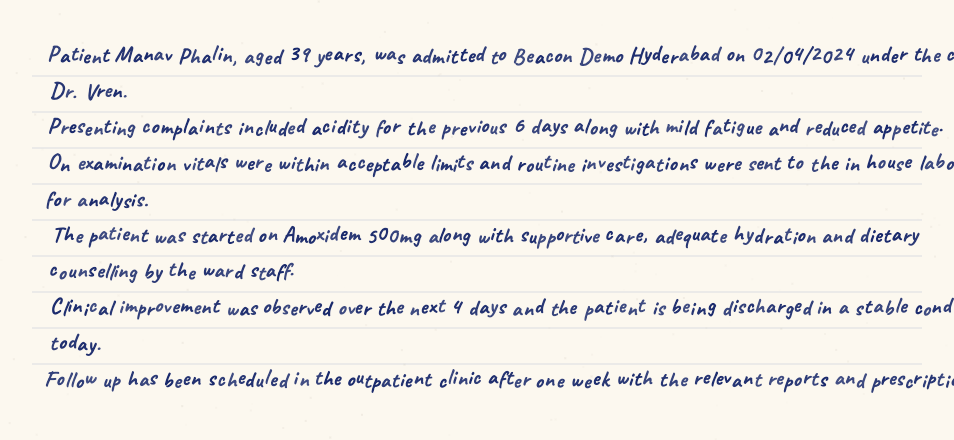 Patient Manav Phalin, aged 39 years, was admitted to Beacon Demo Hyderabad on 02/04/2024 under the
Dr. Vren.
Presenting complaints included acidity for the previous 6 days along with mild fatigue and reduced appetite.
On examination vitals were within acceptable limits and routine investigations were sent to the in house
for analysis.
The patient was started on Amoxidem 500mg along with supportive care, adequate hydration and dietary
counselling by the ward staff.
Clinical improvement was observed over the next 4 days and the patient is being discharged in a stable
today.
Follow up has been scheduled in the outpatient clinic after one week with the relevant reports and